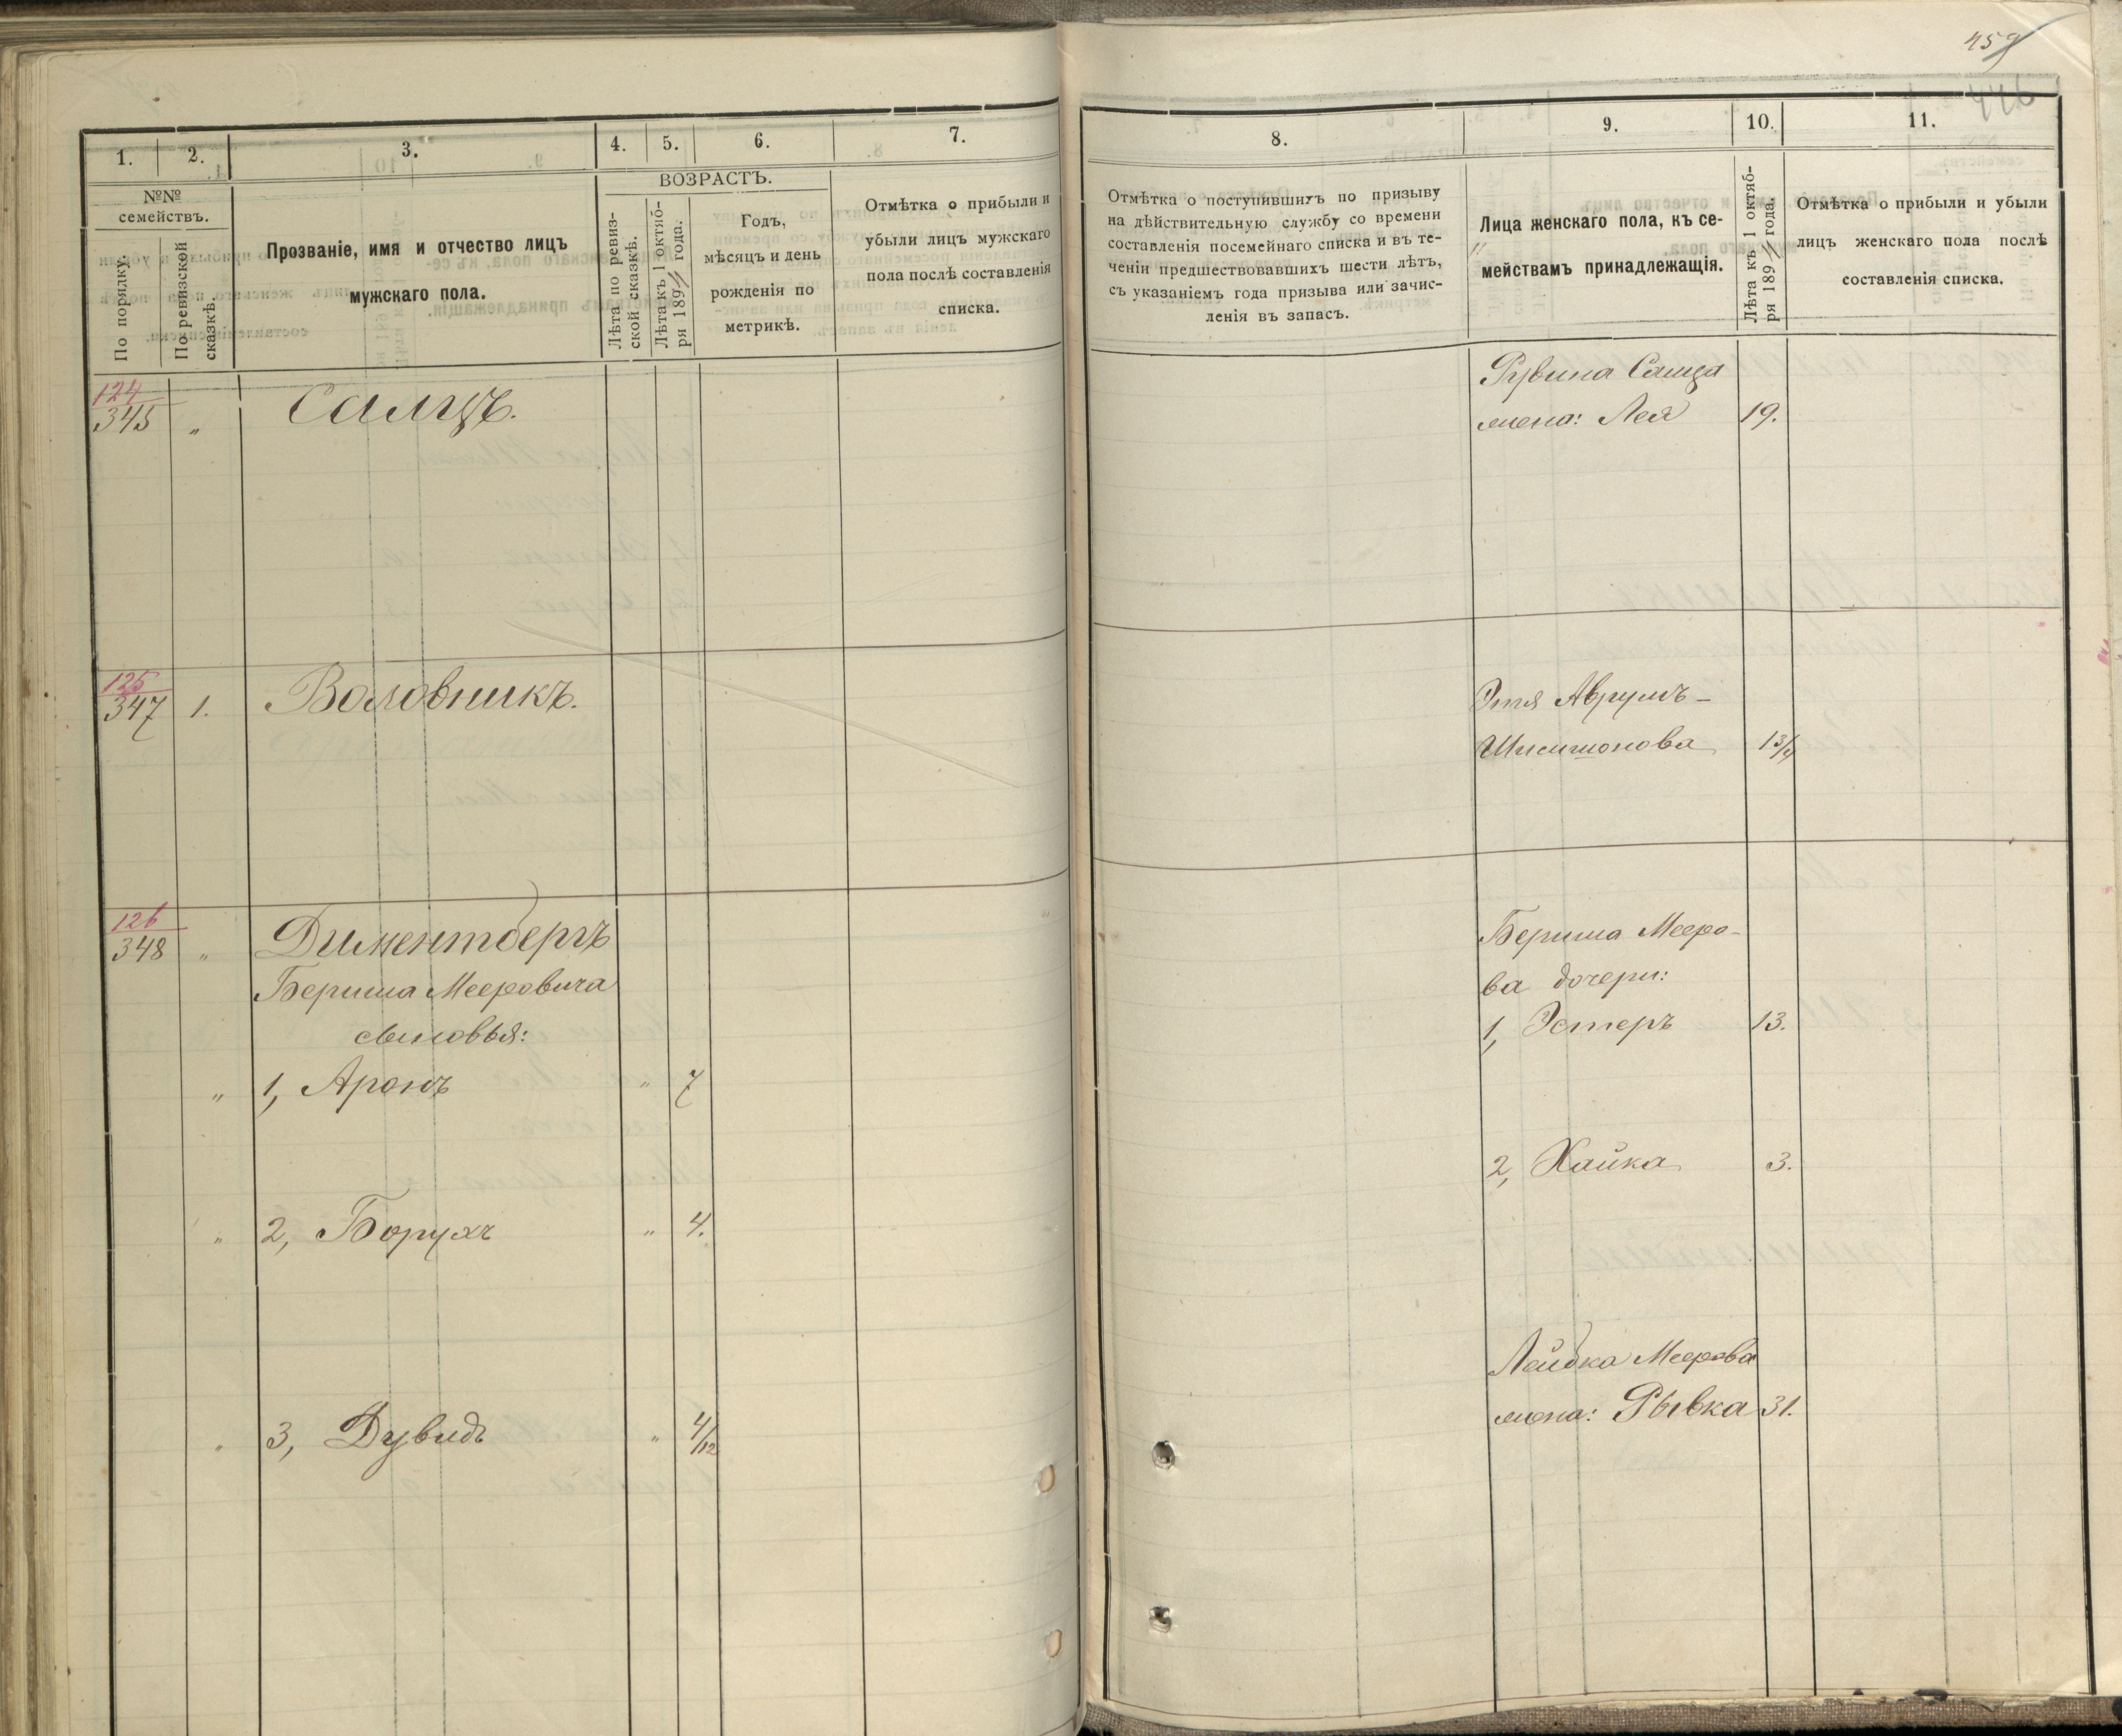 459
446
1.
2.
3.
4.
5.
6.
7.
№№ семействъ.
По порядку.
По ревизской сказкѣ.
Прозваніе, имя и отчество лицъ
мужскаго пола.
ВОЗРАСТЪ.
Лѣта по ревиз-
ской сказкѣ.
Лѣта къ 1 октяб-
ря 189 года.
Годъ,
мѣсяцъ и день
рожденія по
метрикѣ.
Отмѣтка о прибыли и
убыли лицъ мужскаго
пола послѣ составленія
списка.
124
345 „ Салцъ.
125
347 1. Воловникъ.
126
348 „ Диментбергъ
Бериша Мееровича
сыновья:
„ 1, Аронъ „ 7
„ 2, Борухъ „ 4.
„ 3, Дувидъ „ 4/12
8.
9.
10.
11.
Отмѣтка о поступившихъ по призыву
на дѣйствительную службу со времени
составленія посемейнаго списка и въ те-
ченіи предшествовавшихъ шести лѣтъ,
съ указаніемъ года призыва или зачис-
ленія въ запасъ.
Лица женскаго пола, къ се-
мействамъ принадлежащія.
Лѣта къ 1 октяб-
ря 189 года.
Отмѣтка о прибыли и убыли
лицъ женскаго пола послѣ
составленія списка.
Рувина Салца
жена: Лея 19.
Этя Аврумъ-
Шлимонова 13/4
Бериша Мееро-
ва дочери:
1, Эстеръ 13.
2, Хайка 3.
Лейбка Меерова
жена: Рывка 31.